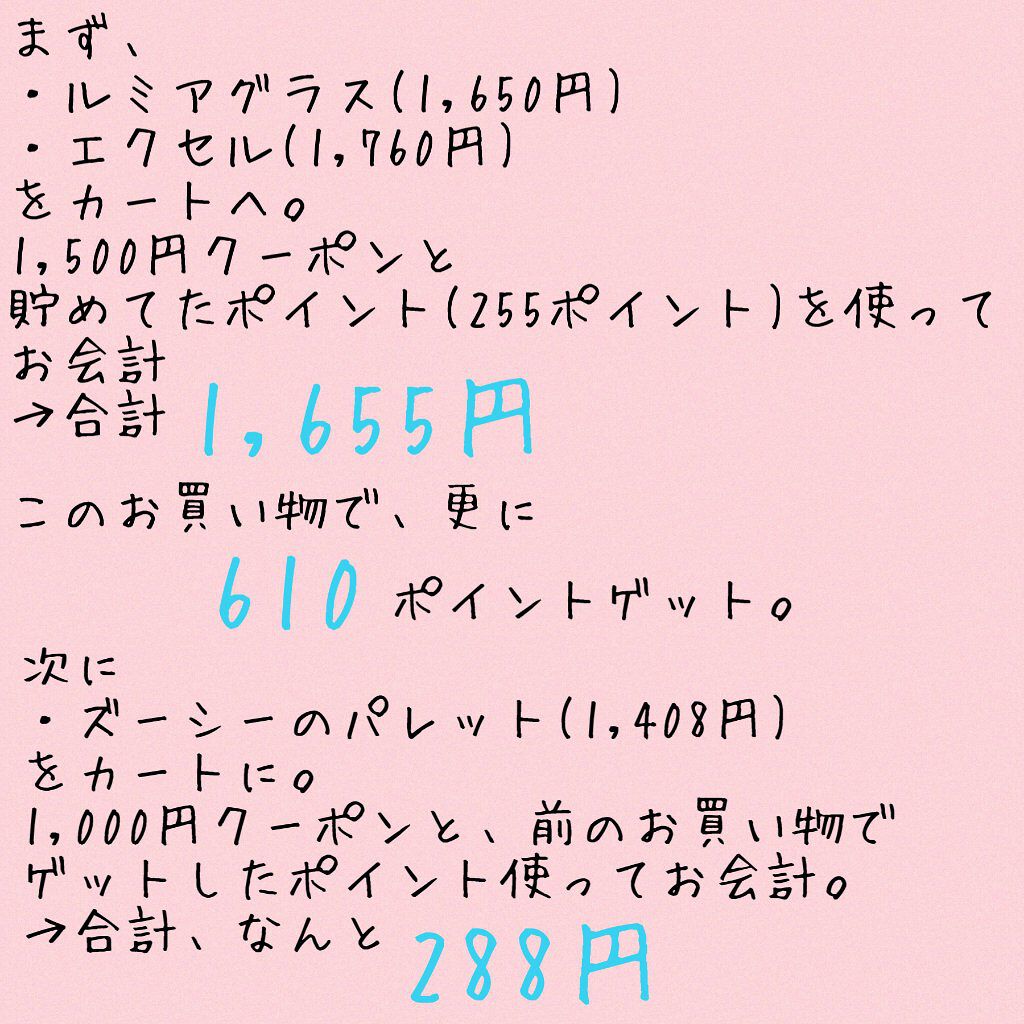 まず、
・ルミアグラス(1,650円)
・エクセル(1,760円)
をカートへ。
1,500円クーポンと
貯めてたポイント(255ポイント)を使って
お会計
→合計 1,655円
このお買い物で、更に
610 ポイントゲット。
次に
・ズーシーのパレット(1,408円)
をカートに。
1,000円クーポンと、前のお買い物で
ゲットしたポイント使ってお会計。
→合計、なんと 288円